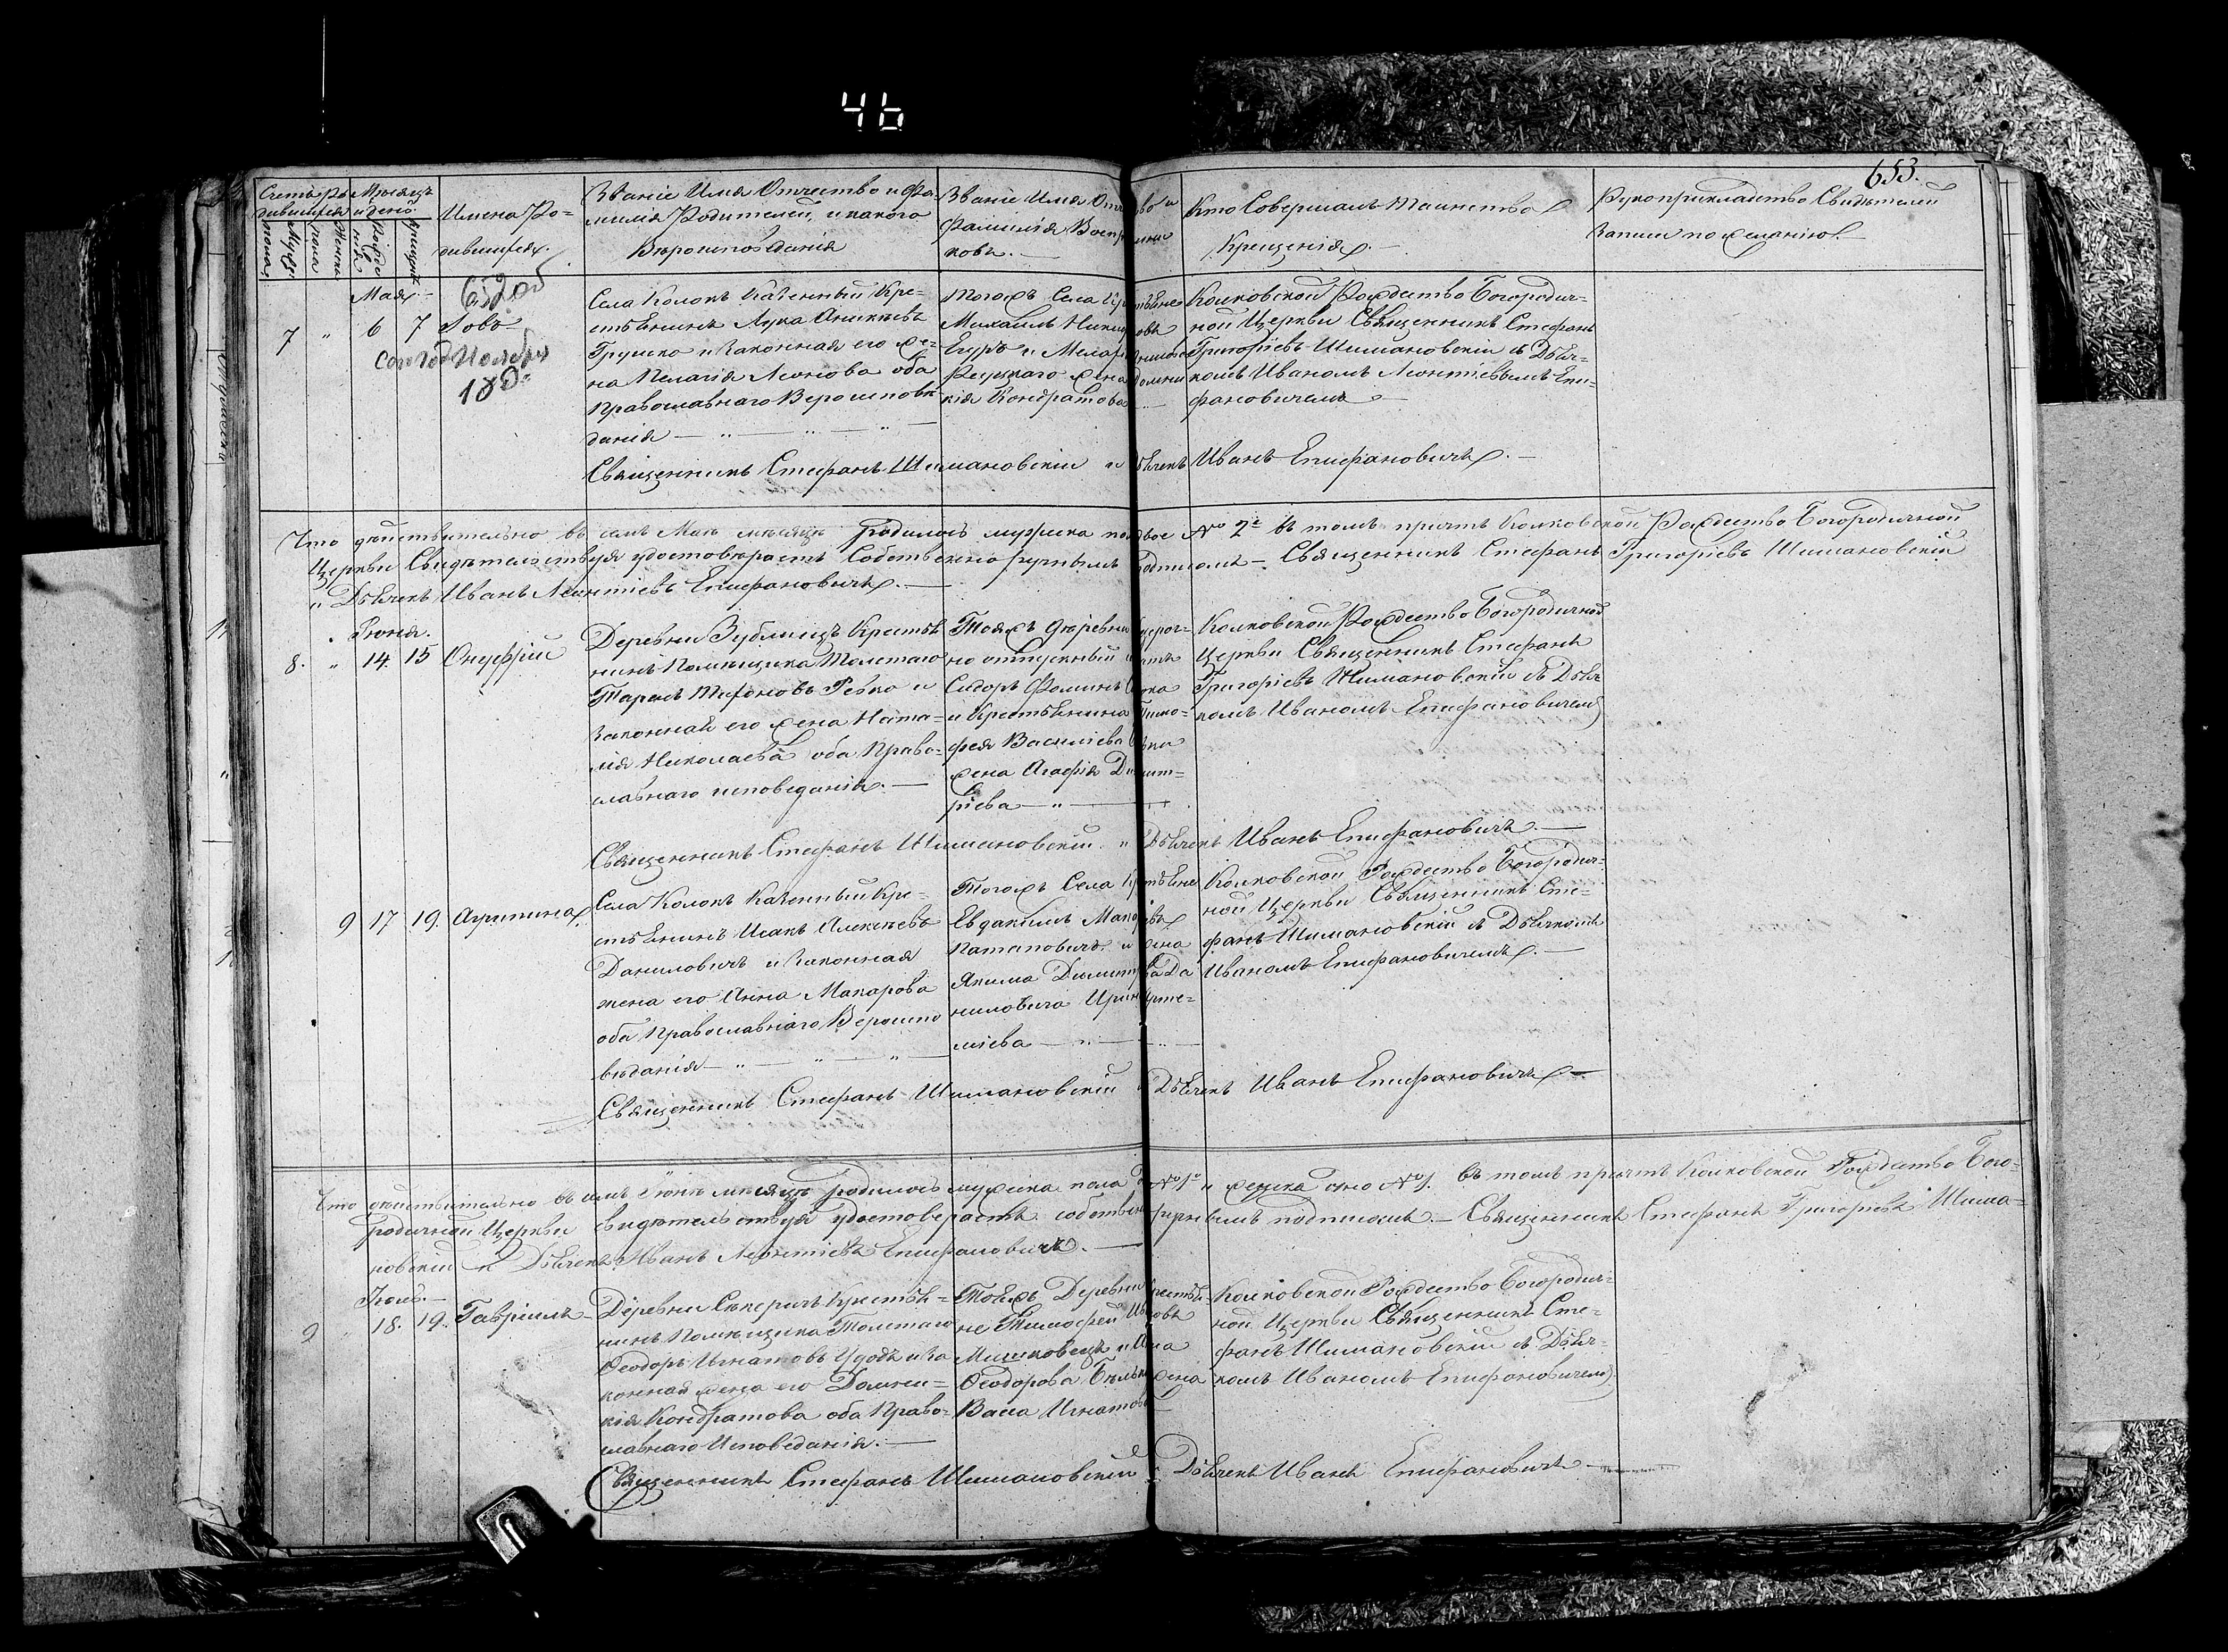 46
653.
Счетъ ро- Мѣсяцъ
дившихся и день
Мужес. пола Женска Рожденія Крещен.
Имена Ро-
дившихся.
Званіе Имя Отчество и Фа-
милія Родителей, и какого
Вѣроисповѣданія
Званіе Имя Отчество и
Фамилія Воспріемни
ковъ.
Кто Совершалъ Таинство
Крещенія.
Рукоприкладство Свидѣтелей
Записи по желанію.
Мая
7 " 6 7 Іовъ
Села Колокъ Казенный Кре-
стьянинъ Лука Аникѣевъ
Грушко и Законная его же-
на Пелагія Леонова оба
Православнаго Вероисповѣ
данія — " — " — " —
Тогожъ Села
Михаилъ
Егоръ и
жена
кія Кондратова
Колковской Рождество Богородич-
ной Церкви Священникъ Стефанъ
Григоріевъ Шимановскій съ Дьяч-
комъ Иваномъ Леонтіевымъ Епи-
фановичемъ
Священникъ Стефанъ Шимановскій и Дьячекъ Иванъ Епифановичъ.
Что дѣйствительно въ семъ Маѣ мѣсяцѣ родилось мужеска пола двое № 2й въ томъ причтъ Колковской Рождество Богородичной
Церкви Свидѣтельствуя удостовѣряетъ Собственноручнымъ подписомъ — Священникъ Стефанъ Григоріевъ Шимановскій
и Дьячекъ Иванъ Леонтіевъ Епифановичъ.
Іюня.
8. " 14. 15 Онуфрій
Деревни Зубчищъ Крестья
нинъ Помѣщика Толстаго
Тарасъ Рѣпко и
Законная его жена Ната-
лія Николаева оба Право-
славнаго исповеданія.
Тояжъ деревни
но отпускный
Сидоръ Фоминъ
и Крестьянина Тимо-
фея Василіева
жена Агафія Димит-
ріева — " —
Колковской Рождество Богородичной
Церкви Священникъ Стефанъ
Григоріевъ Шимановскій съ Дьяч
комъ Иваномъ Епифановичемъ
Священникъ Стефанъ Шимановскій и Дьячекъ Иванъ Епифановичъ.
9 17 19. Агрипина
Села Колокъ Казенный Кре-
стьянинъ Исакъ Алексѣевъ
Даниловичъ и Законная
жена его Анна Макарова
оба Православнаго Вероиспо
вѣданія — " — " —
Тогожъ Села
Евдокимъ
Патаповичъ и жена
Якима Димитрова Да
ниловича Ирина Арте-
міева — " —
Колковской Рождество Богородич-
ной Церкви Священникъ Сте-
фанъ Шимановскій съ Дьячкомъ
Иваномъ Епифановичемъ.
Священникъ Стефанъ Шимановскій и Дьячекъ Иванъ Епифановичъ
Что дѣйствительно въ семъ Іюнѣ мѣсяцѣ родилось мужеска пола № 1й и женска одно № 1. въ томъ причтъ Колковской Рождество Бого-
родичной Церкви свидѣтельствуя удостоверяетъ собственноручнымъ подписомъ. — Священникъ Стефанъ Григоріевъ Шима-
новскій и Дьячекъ Иванъ Леонтіевъ Епифановичъ.
Іюль.
9 18. 19. Гавріилъ
Деревни Крестья-
нинъ Помѣщика Толстаго
Ѳеодоръ Игнатовъ Удодъ и За
конная жена его Домни-
кія Кондратова оба Право-
славнаго Исповеданія.
Тояжъ Деревни Крестья-
не Тимофей
и
Ѳеодорова жена
Васса Игнатова
Колковской Рождество Богородич-
ной Церкви Священникъ Сте-
фанъ Шимановскій съ Дьяч-
комъ Иваномъ Епифановичемъ
Священникъ Стефанъ Шимановскій и Дьячекъ Иванъ Епифановичъ